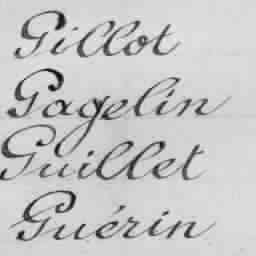 Gillot
Gagelin
Guillet
Guérin